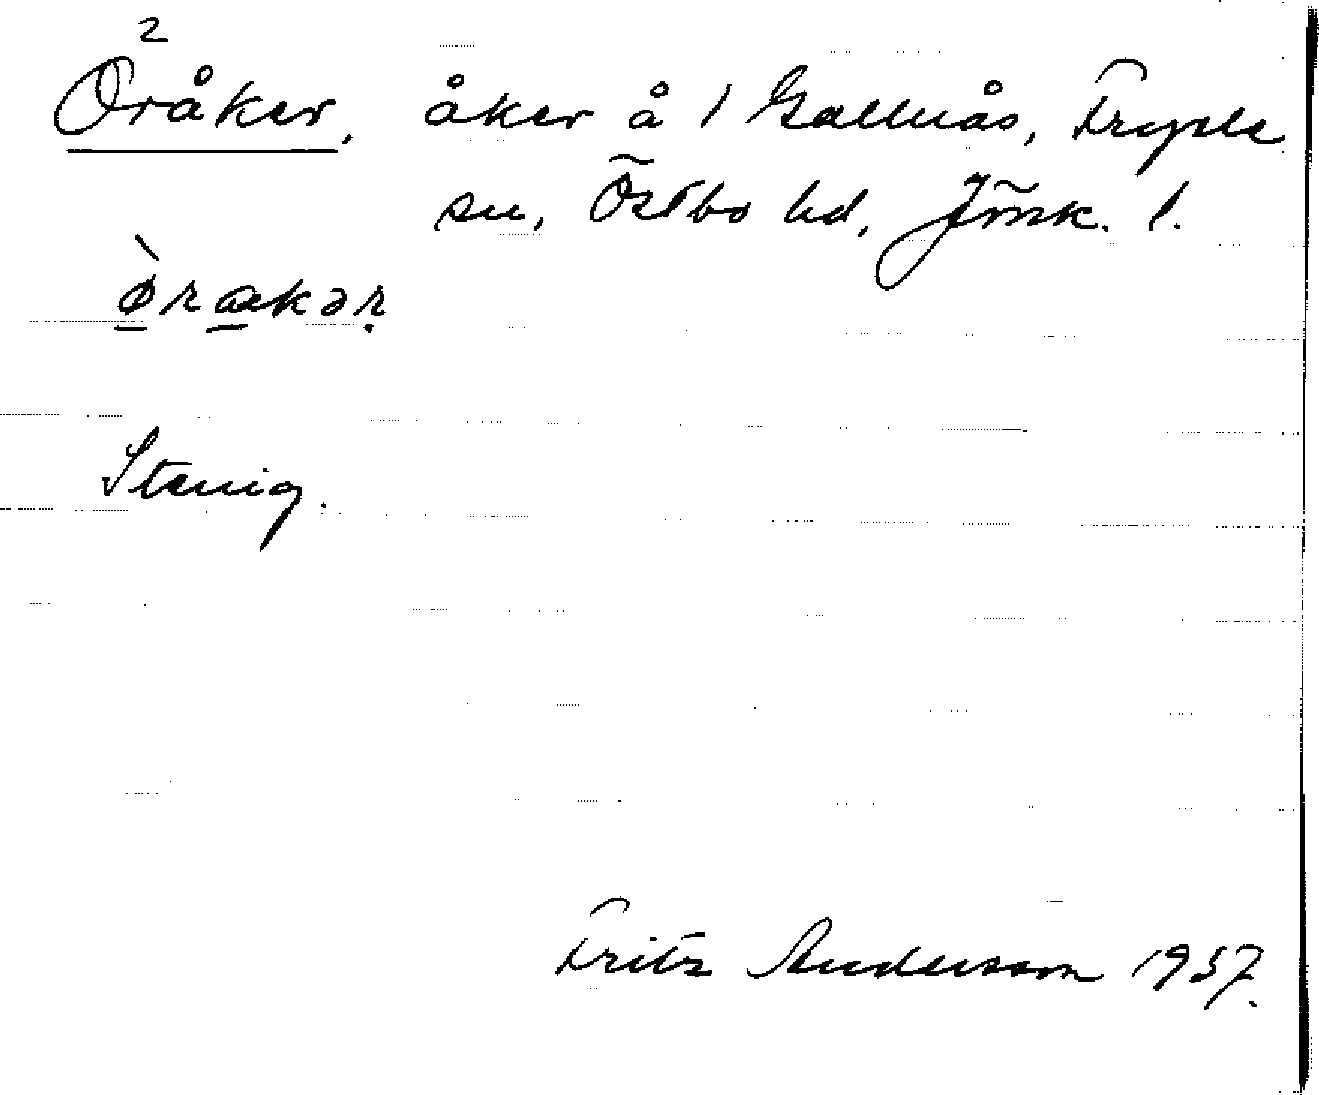 2
Öråker, åker å 1 Gallnås, Fryele
sn, Östbo hd, Jönk. l.
ø̀rakər
Stenig.
Fritz Andersson 1937.